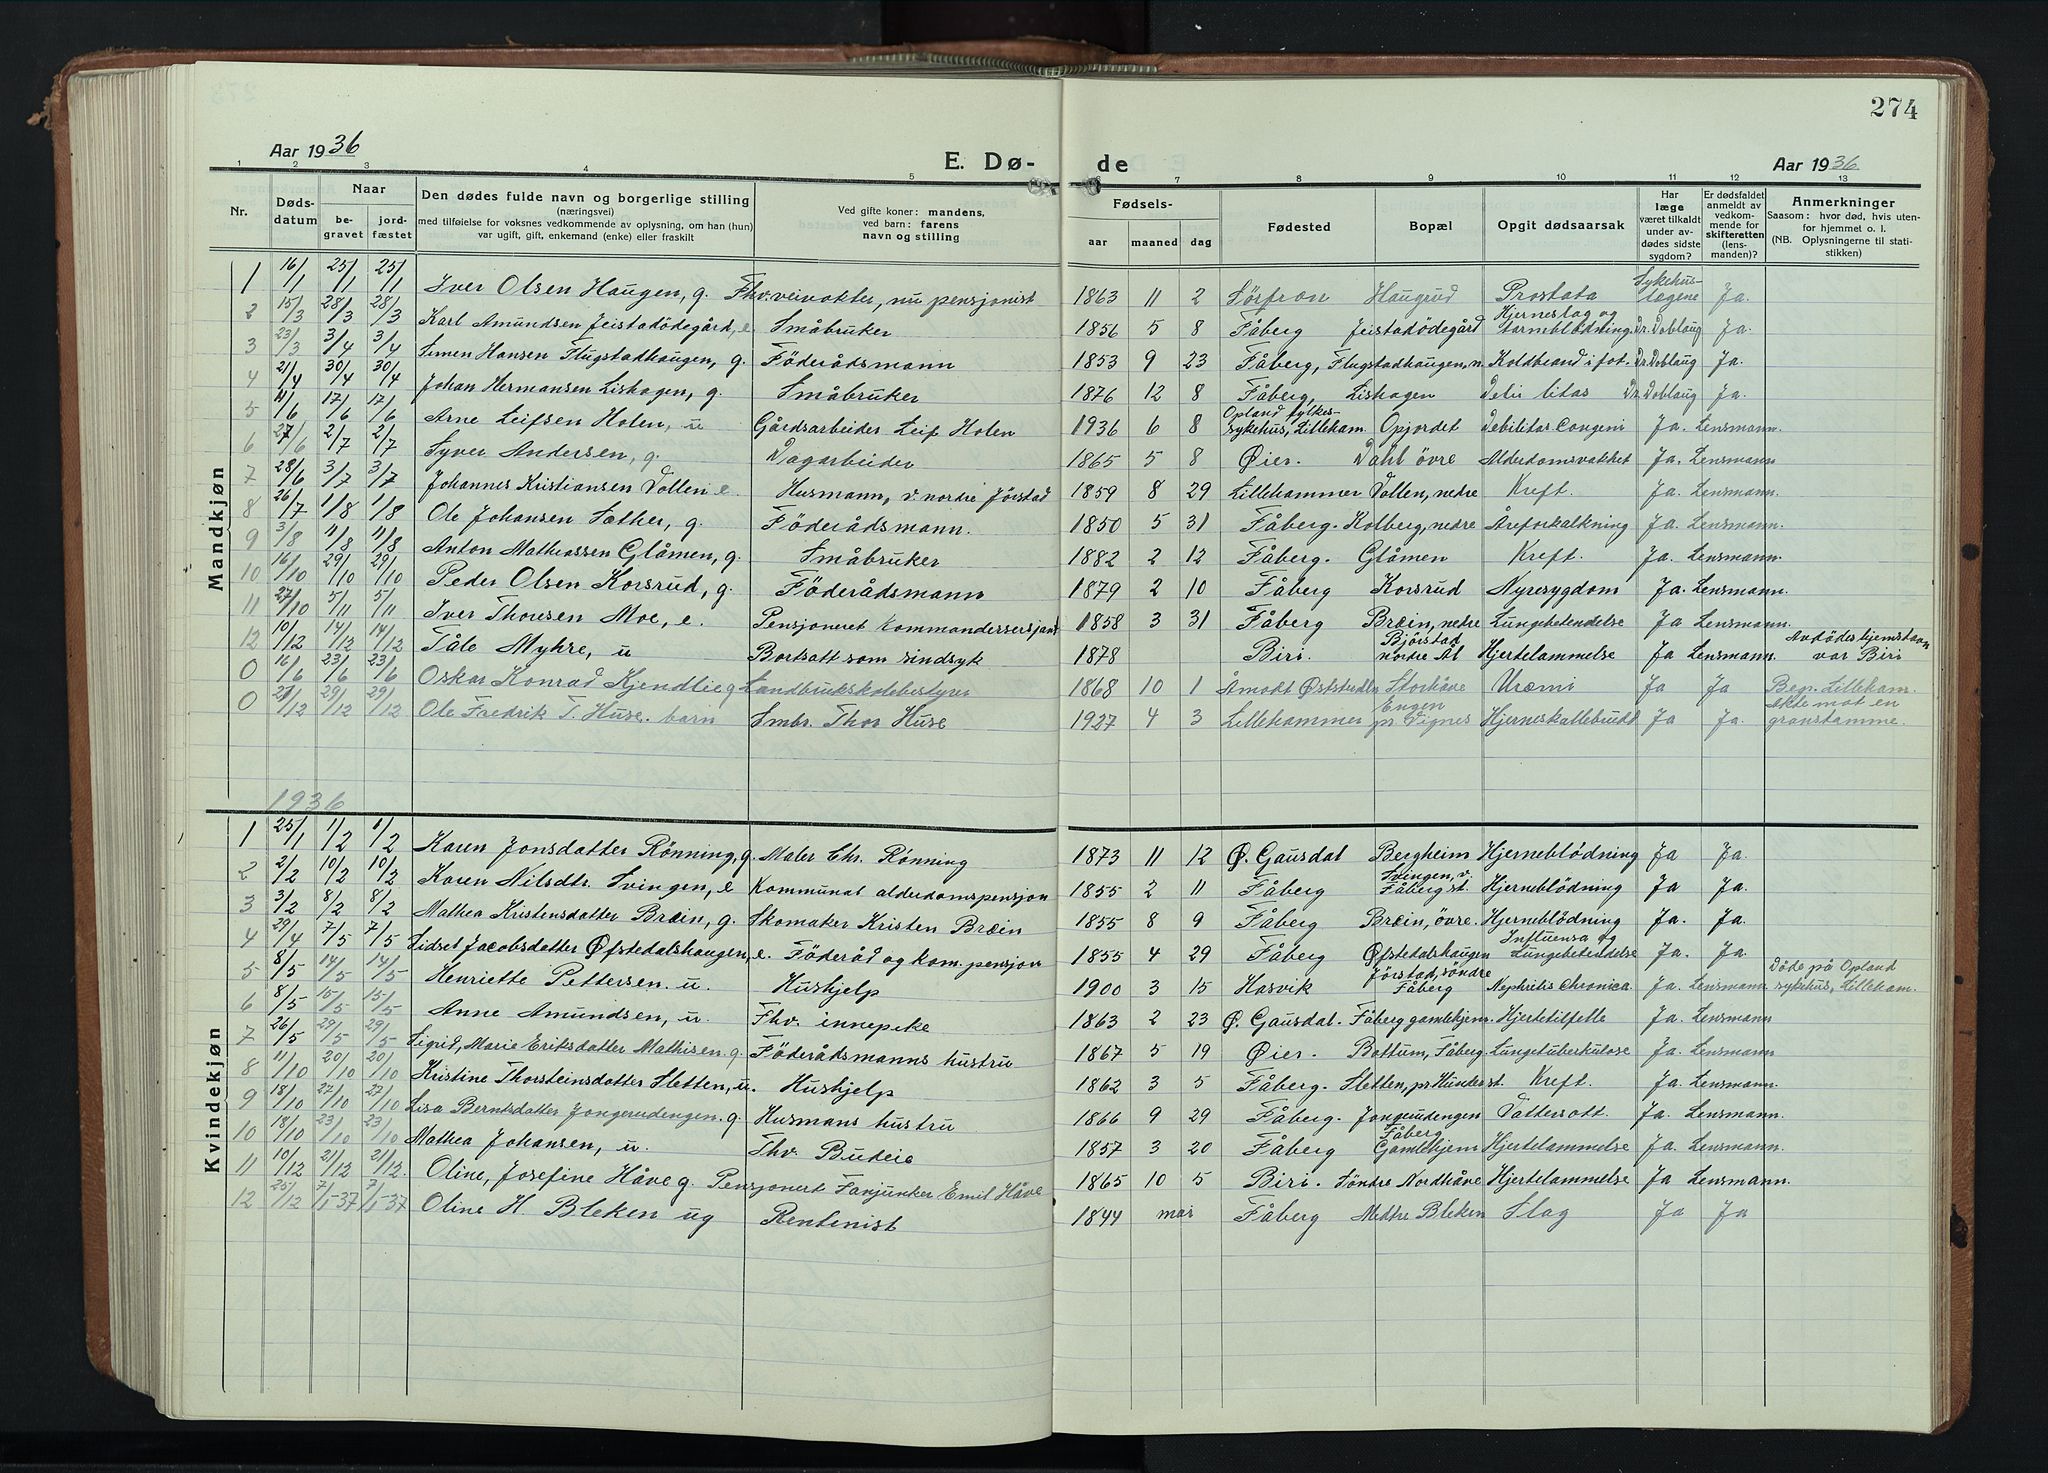 274
Aar 1936
E. Dø- de
Aar 1936
1 2 3 4 5 6 7 8 9 10 11 12 13
Nr. Døds-datum Naar be-gravet jord-fæstet
Den dødes fulde navn og borgerlige stilling
(næringsvei)
med tilføielse for voksnes vedkommende av oplysning, om han (hun)
var ugift, gift, enkemand (enke) eller fraskilt
Ved gifte koner: mandens,
ved barn: farens
navn og stilling
Fødsels-
aar maaned dag
Fødested Bopæl Opgit dødsaarsak
Har læge været tilkaldt under av-dødes sidste sygdom?
Er dødsfaldet anmeldt av vedkom-mende for skifteretten (lens-manden)?
Anmerkninger
Saasom: hvor død, hvis uten-
for hjemmet o. l.
(NB. Oplysningerne til stati-
stikken)
Mandkjøn
1 16/1 25/1 25/1 Iver Olsen Haugen, g. Fhv. veivokter, nu pensjonist 1863 11 2 Sørfron Haugrud Prostata Sykehus-lægene Ja.
2 15/3 28/3 28/3 Karl Amundsen Jeistadödegård, e Småbruker 1856 5 8 Fåberg Jeistadödegård Hjerneslag og Dr. Doblaug Ja.
3 23/3 3/4 3/4 Simen Hansen Flugstadhaugen, g. Föderådsmann 1853 9 23 Fåberg, Flugstadhaugen, n. Koldbrand i fot. Dr. Doblaug Ja.
4 21/4 30/4 30/4 Johan Hermansen Lishagen, g. Småbruker 1876 12 8 Fåberg, Lishagen Debilitas Dr. Doblaug Ja.
5 11/6 17/6 17/6 Arne Leifsen Holen, u Gårdsarbeider Leif Holen 1936 6 8 Opland fylkes-sykehus, Lilleham. Opjordet Debilitas Congeni Ja. Lensmann.
6 27/6 2/7 2/7 Syver Andersen, g. Dagarbeider 1865 5 8 Øier. Dahl övre Alderdomsvakket Ja. Lensmann
7 28/6 3/7 3/7 Johannes Kristiansen Vollen e. Husmann, v. nordre Jörstad 1859 8 29 Lillehammer Vollen, nedre Kreft. Ja. Lensmann.
8 26/7 1/8 1/8 Ole Johansen Sæther, g. Föderådsmann. 1850 5 31 Fåberg. Kolberg, nedre Åreforkalkning Ja. Lensmann.
9 3/8 11/8 11/8 Anton Mathiassen Glåmen, g. Småbruker 1882 2 12 Fåberg. Glåmen Kreft. Ja. Lensmann.
10 16/10 29/10 29/10 Peder Olsen Korsrud, g. Föderådsmann 1879 2 10 Fåberg Korsrud Nyresygdom Ja. Lensmann.
11 27/10 5/11 5/11 Iver Thoresen Moe, e. Pensjoneret kommandersersjant 1858 3 31 Fåberg Bræin, nedre Lungebetendelse Ja. Lensmann.
12 10/12 14/12 14/12 Tåle Myhre, u Bortsatt som sindsyk 1878 Biri. Bjørstad nordre Ål Hjertelammelse Ja Lensmann. Avdödes hjemstavn var Biri
0 16/6 23/6 23/6 Oskar Konrad Kjendlie g Landbruksskolebestyrer 1868 10 1 Åmodt Øststerdalen Storhåve Uræmi Ja Ja Begr. Lilleham.
0 27/12 29/12 29/12 Ole Fredrik T. Huse. barn Smbr. Thor Huse 1927 4 3 Lillehammer Engen pr Vignes Hjerneskallebrudd Ja Ja. Akte mot en granstamme.
1936
Kvindekjøn
1 25/1 1/2 1/2 Karen Jonsdatter Rönning, g. Maler Chr. Rönning 1873 11 12 Ø. Gausdal Bergheim Hjerneblödning Ja Ja.
2 2/2 10/2 10/2 Karen Nilsdtr. Svingen, e Kommunal alderdomspensjon 1855 2 11 Fåberg Svingen, v. Fåberg st. Hjerneblödning Ja Ja.
3 3/2 8/2 8/2 Mathea Kristensdatter Bræin, g. Skomaker Kristen Bræin 1855 8 9 Fåberg Bræin, övre. Hjerneblödning Ja. Ja.
4 29/4 7/5 7/5 Sidsel Jacobsdatter Øfstedalshaugen, e. Föderåd og kom. pensjon 1855 4 29 Fåberg Øfstedalshaugen Influensa og Lungebetendelse Ja. Ja.
5 8/5 14/5 14/5 Henriette Pettersen. u. Hushjelp 1900 3 15 Hasvik Jörstad, söndre Fåberg Nephritis Chronica. Ja. Lensmann Döde på Opland sykehus, Lilleham.
6 8/5 15/5 15/5 Anne Amundsen, u. Fhv. innepike 1863 2 23 Ø. Gausdal. Fåberg gamlehjem. Hjertetilfelle Ja. Lensmann
7 26/5 29/5 29/5 Sigrid, Marie Eriksdatter Mathisen. g. Föderådsmanns hustru 1867 5 19 Øier. Bottum, Fåberg. Lungetuberkulose Ja. Lensmann
8 11/10 20/10 20/10 Kristine Thorsteinsdatter Sletten, u. Hushjelp 1862 3 5 Fåberg. Sletten, pr Hunder st. Kreft. Ja. Lensmann.
9 18/10 27/10 27/10 Lisa Berntsdatter Jongerudengen. g Husmans hustru 1866 9 29 Fåberg. Jongerudengen Vattersott. Ja. Lensmann.
10 18/10 23/10 23/10 Mathea Johansen, u. Fhv. Budeie 1857 3 20 Fåberg Fåberg Gamlehjem Hjertelammelse Ja. Lensmann.
11 10/12 21/12 21/12. Oline, Josefine Håve g. Pensjonert Fanjunker Emil Håve 1865 10 5 Biri. Söndre Nordhåve Hjertelammelse Ja Lensmann.
12 25/12 7/1 37 7/1 37 Oline H. Bleken ug Rentenist 1844 mai Fåberg Medtre Bleken Slag Ja Ja